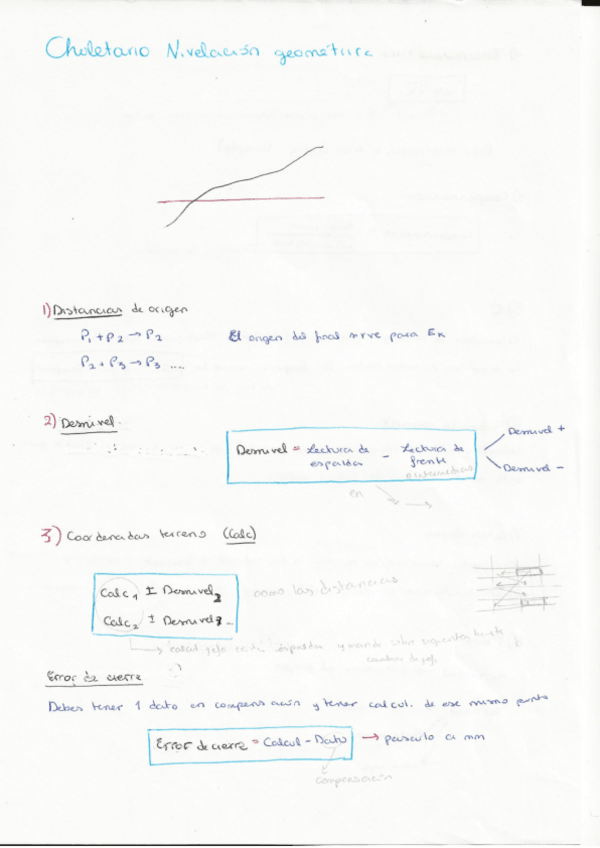 Choletario Nivelación geométrica
1) Distancias de origen
P1 + P2 → P2
El origen del final sirve para EK
P2 + P3 → P3 ....
2) Desnivel
Desnivel = Lectura de espalda - Lectura de frente
o intermedias
Desnivel +
Desnivel -
en
3) Coordenadas terreno (Calc)
Calc1 ± Desnivel2
Calc2 ± Desnivel3...
como las distancias
Error de cierre
?
Debes tener 1 dato en compensación y tener calcul. de ese mismo punto
Error de cierre = Calcul - Dato → pasarlo a mm
compensación